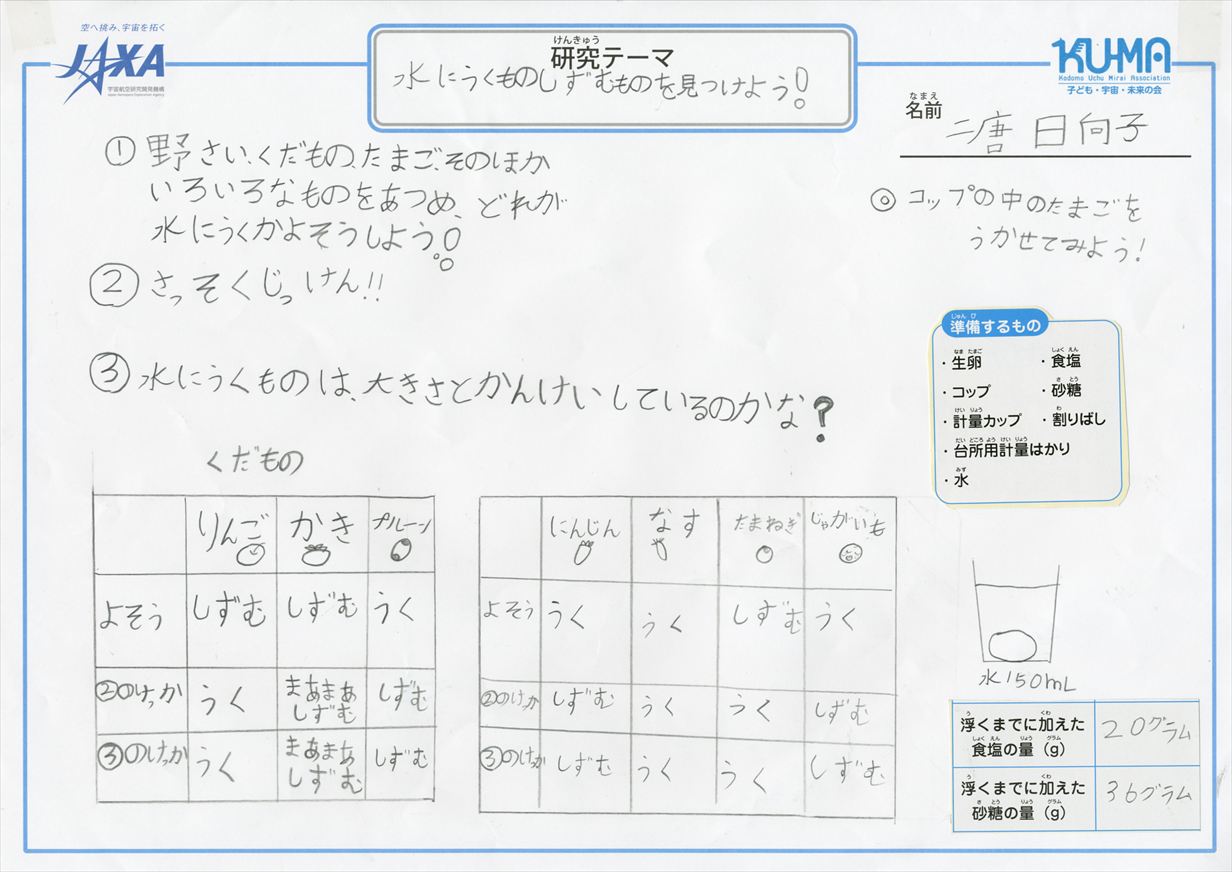 空へ挑み、宇宙を拓く
JAXA
宇宙航空研究開発機構
Japan Aerospace Exploration Agency
けんきゅう
研究テーマ
水にうくものしずむものを見つけよう!
KU-MA
Kodomo Uchu Mirai Association
子ども・宇宙・未来の会
なまえ
名前
二唐 日向子
① 野さい、くだもの、たまご、そのほか
いろいろなものをあつめ、どれが
水にうくかよそうしよう!。
② さっそくじっけん!!
③ 水にうくものは、大きさとかんけいしているのかな?
◎ コップの中のたまごを
うかせてみよう!
じゅん び
準備するもの
なま たまご しょく えん
・生卵 ・食塩
さ とう
・コップ ・砂糖
けい りょう わ
・計量カップ ・割りばし
だい どころ よう けい りょう
・台所用計量はかり
みず
・水
くだもの
りんご かき プルーン
よそう しずむ しずむ うく
②のけっか うく まあまあしずむ しずむ
③のけっか うく まあまあしずむ しずむ
にんじん なす たまねぎ じゃがいも
よそう うく うく しずむ うく
②のけっか しずむ うく うく しずむ
③のけっか しずむ うく うく しずむ
水150mL
う くわ
浮くまでに加えた
しょく えん りょう グラム
食塩の量(g) 20グラム
う くわ
浮くまでに加えた
さ とう りょう グラム
砂糖の量(g) 36グラム